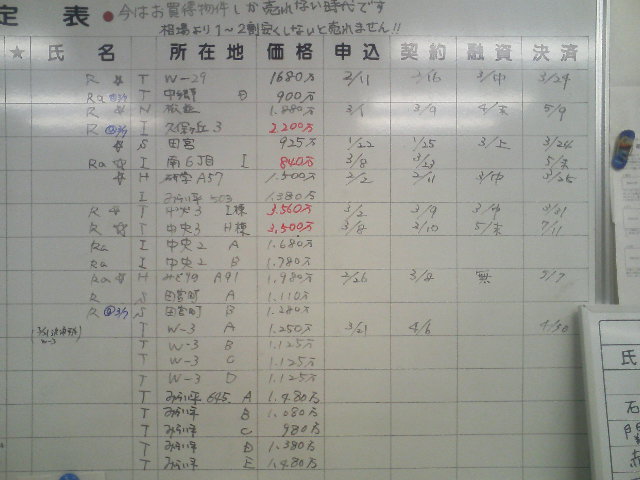 定 表 ● 今はお買得物件しか売れない時代です
相場より1〜2割安くしないと売れません!!
★ 氏 名 所在地 価格 申込 契約 融資 決済
R ☆ T W-29 1680万 2/11 2/16 3/中 3/24
Ra @3/7 T 中郷 B 900万
R ☆ N 1.880万 3/1 3/9 4/末 5/9
R @3/7 I 久保ヶ丘3 2.200万
☆ S 田宮 925万 1/22 1/25 3/上 3/24
Ra ☆ I 南6丁目 I 840万 3/8 3/23 5/末
☆ H 研学A57 1.500万 2/2 2/11 3/中 3/25
I みらい平 503 1.380万
R ☆ T 中央3 I棟 3.560万 3/2 3/9 3/中 3/31
R ☆ T 中央3 H棟 3,500万 3/8 3/10 5/末 7/11
Ra I 中央2 A 1.680万
Ra I 中央2 B 1.780万
Ra ☆ H みどりの A91 1.980万 2/26 3/8 無
R S 田宮町 A 1.110万
R @3/7 S 田宮町 B 1.280万
W-3 T W-3 A 1.250万 3/21 4/6 4/30
T W-3 B 1.125万
T W-3 C 1.125万
T W-3 D 1.125万
T みらい平 645. A 1.480万
T みらい平 B 1.080万
T みらい平 C 980万
T みらい平 D 1.380万
T みらい平 E 1.480万
氏
石
門
赤